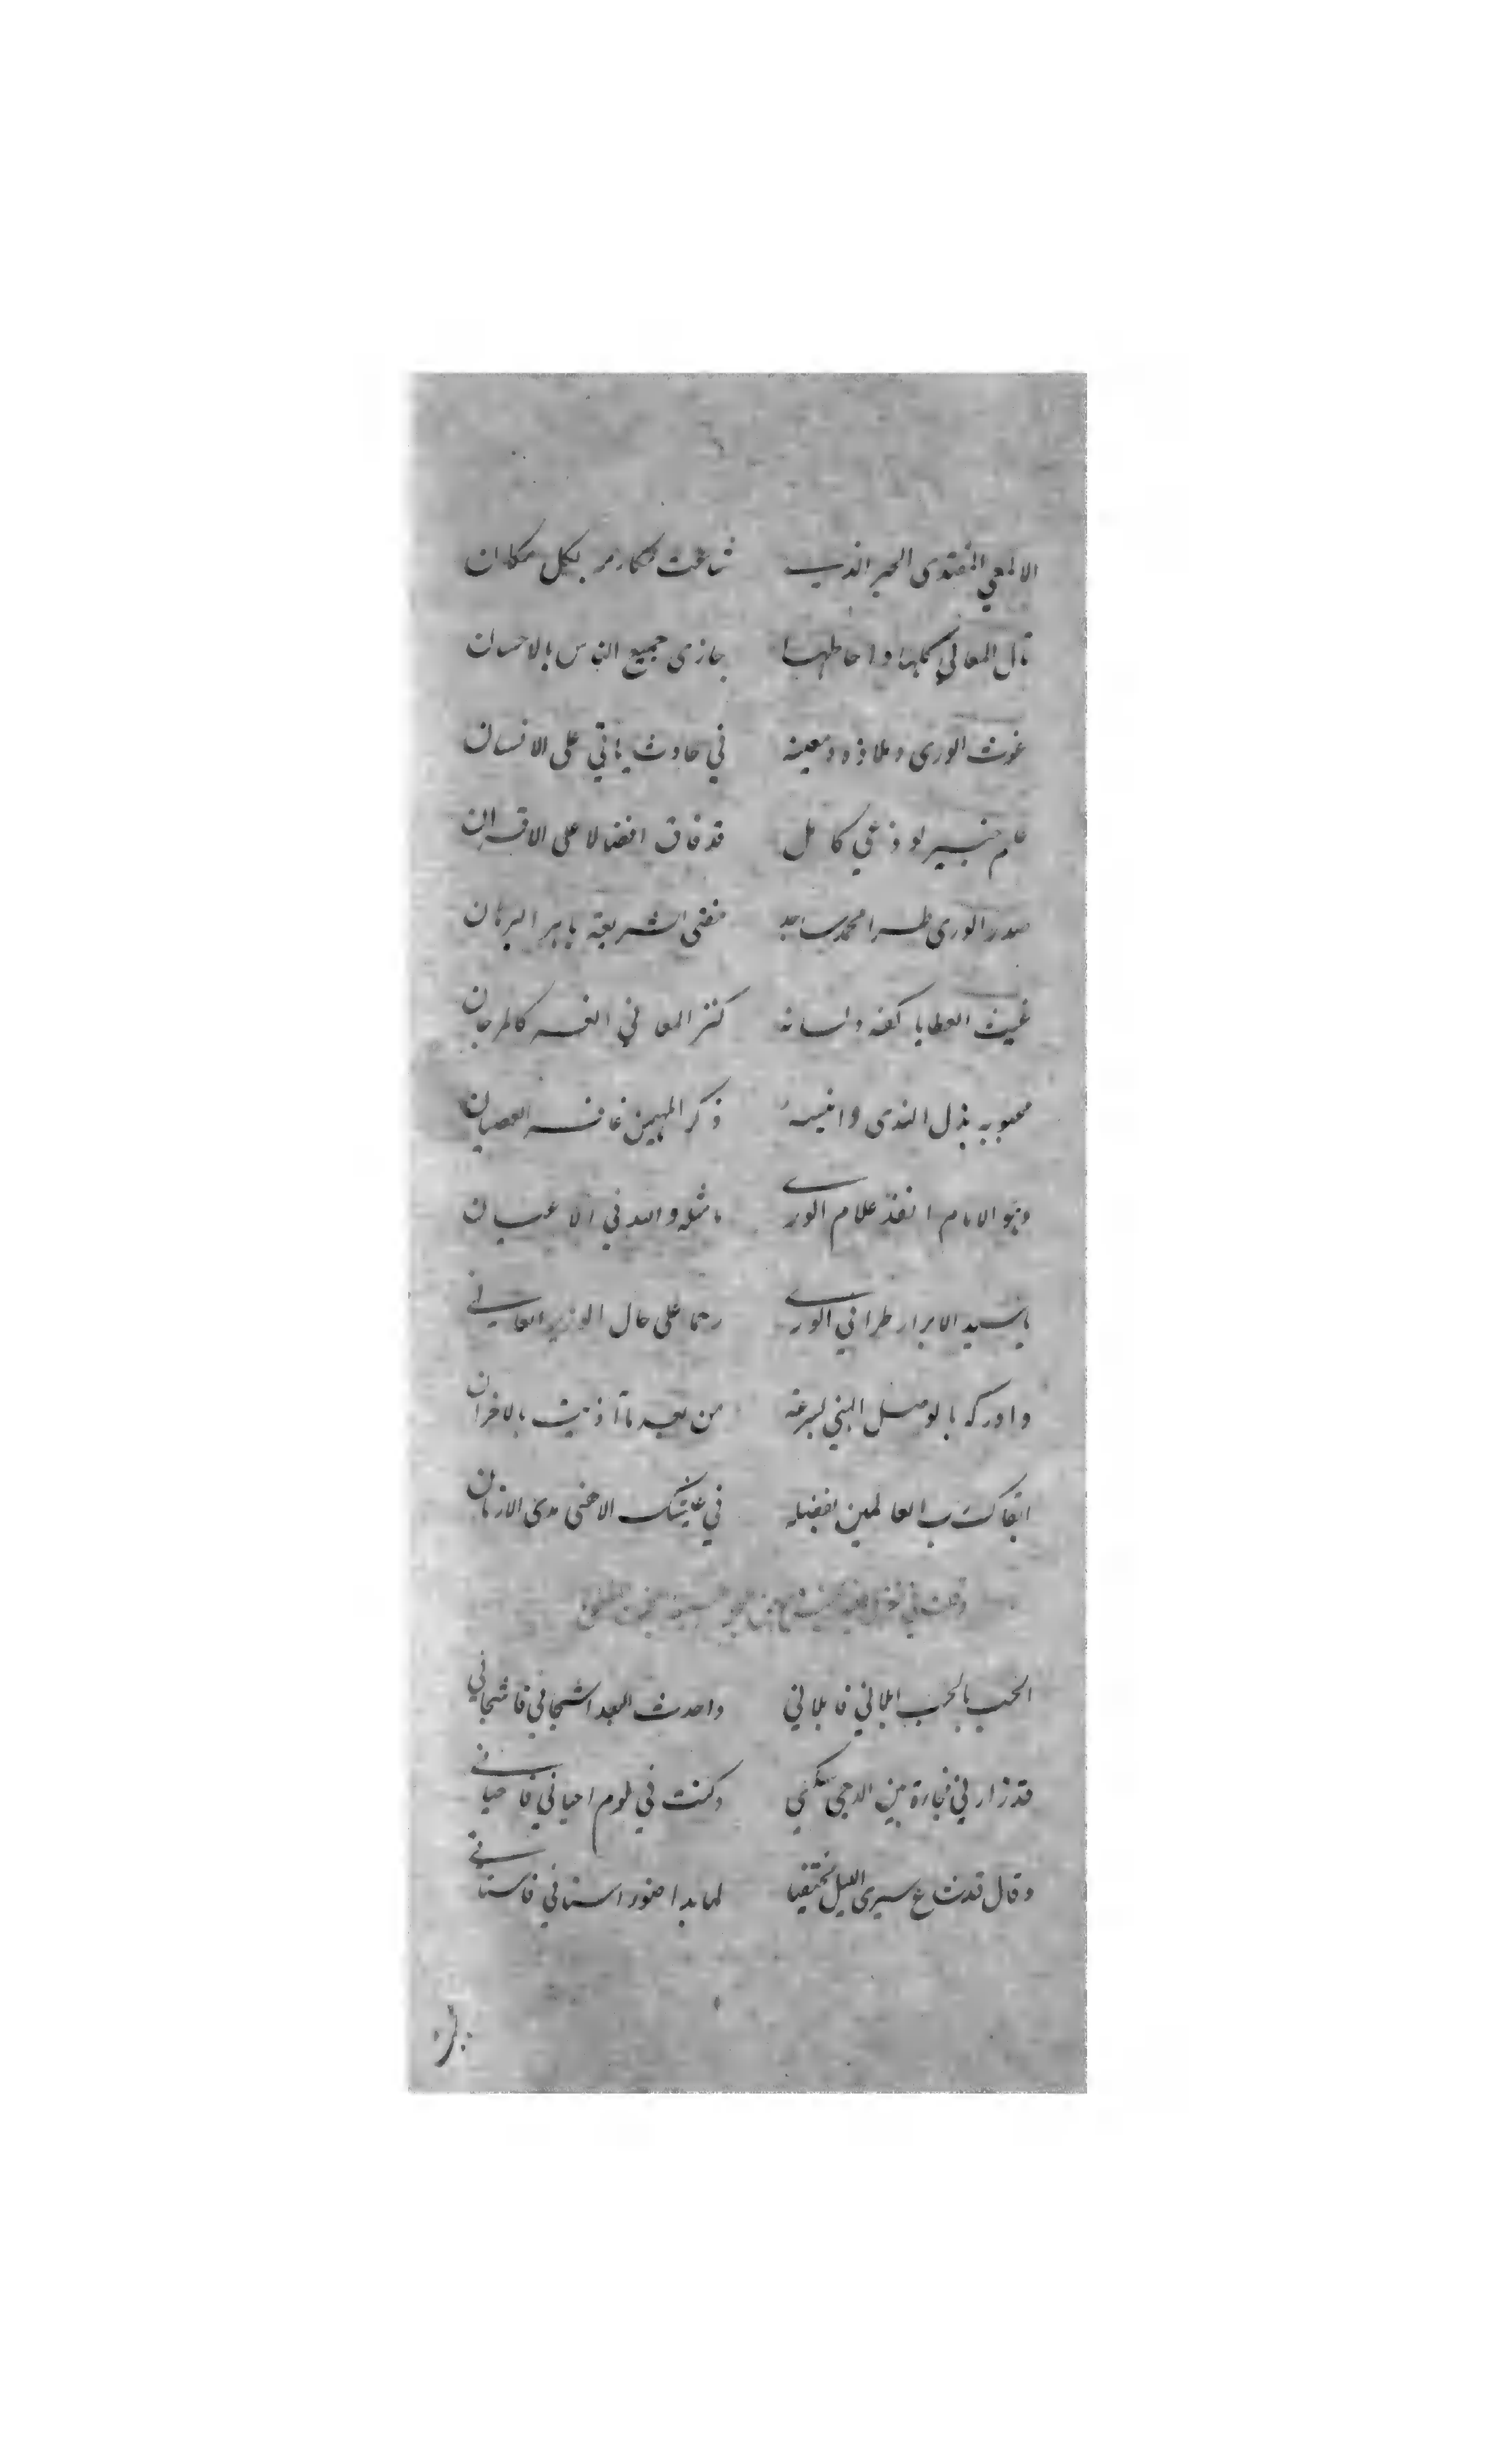 الالمعي المقتدى الحبر الذي شاعت مكارمه بكل مكان
نال المعالي كلها واحاطها جازى جميع الناس بالاحسان
غوث الورى وملاذه ومعينه في حادث ياتي على الانسان
علم خبير لوذعي كامل قد فاق افضالا على الاقران
صدر الورى طرا محمد ساجد مفتي الشريعة باهر البرهان
غيث العطايا كفه ولسانه كنز المعاني الغر كالمرجان
محبوبه بذل الندى وانيسه ذكر المهيمن غافر العصيان
وهو الامام علام الورى ما مثله والله في الاعيان
يا سيد الابرار طرا في الورى رحما على حال العاني
وادركه بالوصل الهني بسرعة من بعد ما آذيت
ابقاك رب العالمين بفضله في عيشك الاهنى مدى الازمان
وقلت في
الحب بالحب ابلاني فابلاني واحدث البعد اشجاني فاشجاني
قد زارني بين الدجى وكنت في لوم احياني فاحياني
وقال قد شاع سيري الليل مختفيا لما بدا